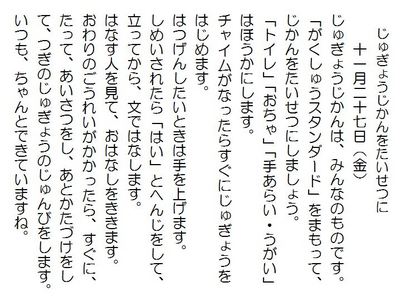 じゅぎょうじかんをたいせつに
十一月二十七日（金）
じゅぎょうじかんは、みんなのものです。
「がくしゅうスタンダード」をまもって、
じかんをたいせつにしましょう。
「トイレ」「おちゃ」「手あらい・うがい」
はほうかにします。
チャイムがなったらすぐにじゅぎょうを
はじめます。
はつげんしたいときは手を上げます。
しめいされたら「はい」とへんじをして、
立ってから、文ではなします。
はなす人を見て、おはなしをききます。
おわりのごうれいがかかったら、すぐに、
たって、あいさつをし、あとかたづけをし
て、つぎのじゅぎょうのじゅんびをします。
いつも、ちゃんとできていますね。